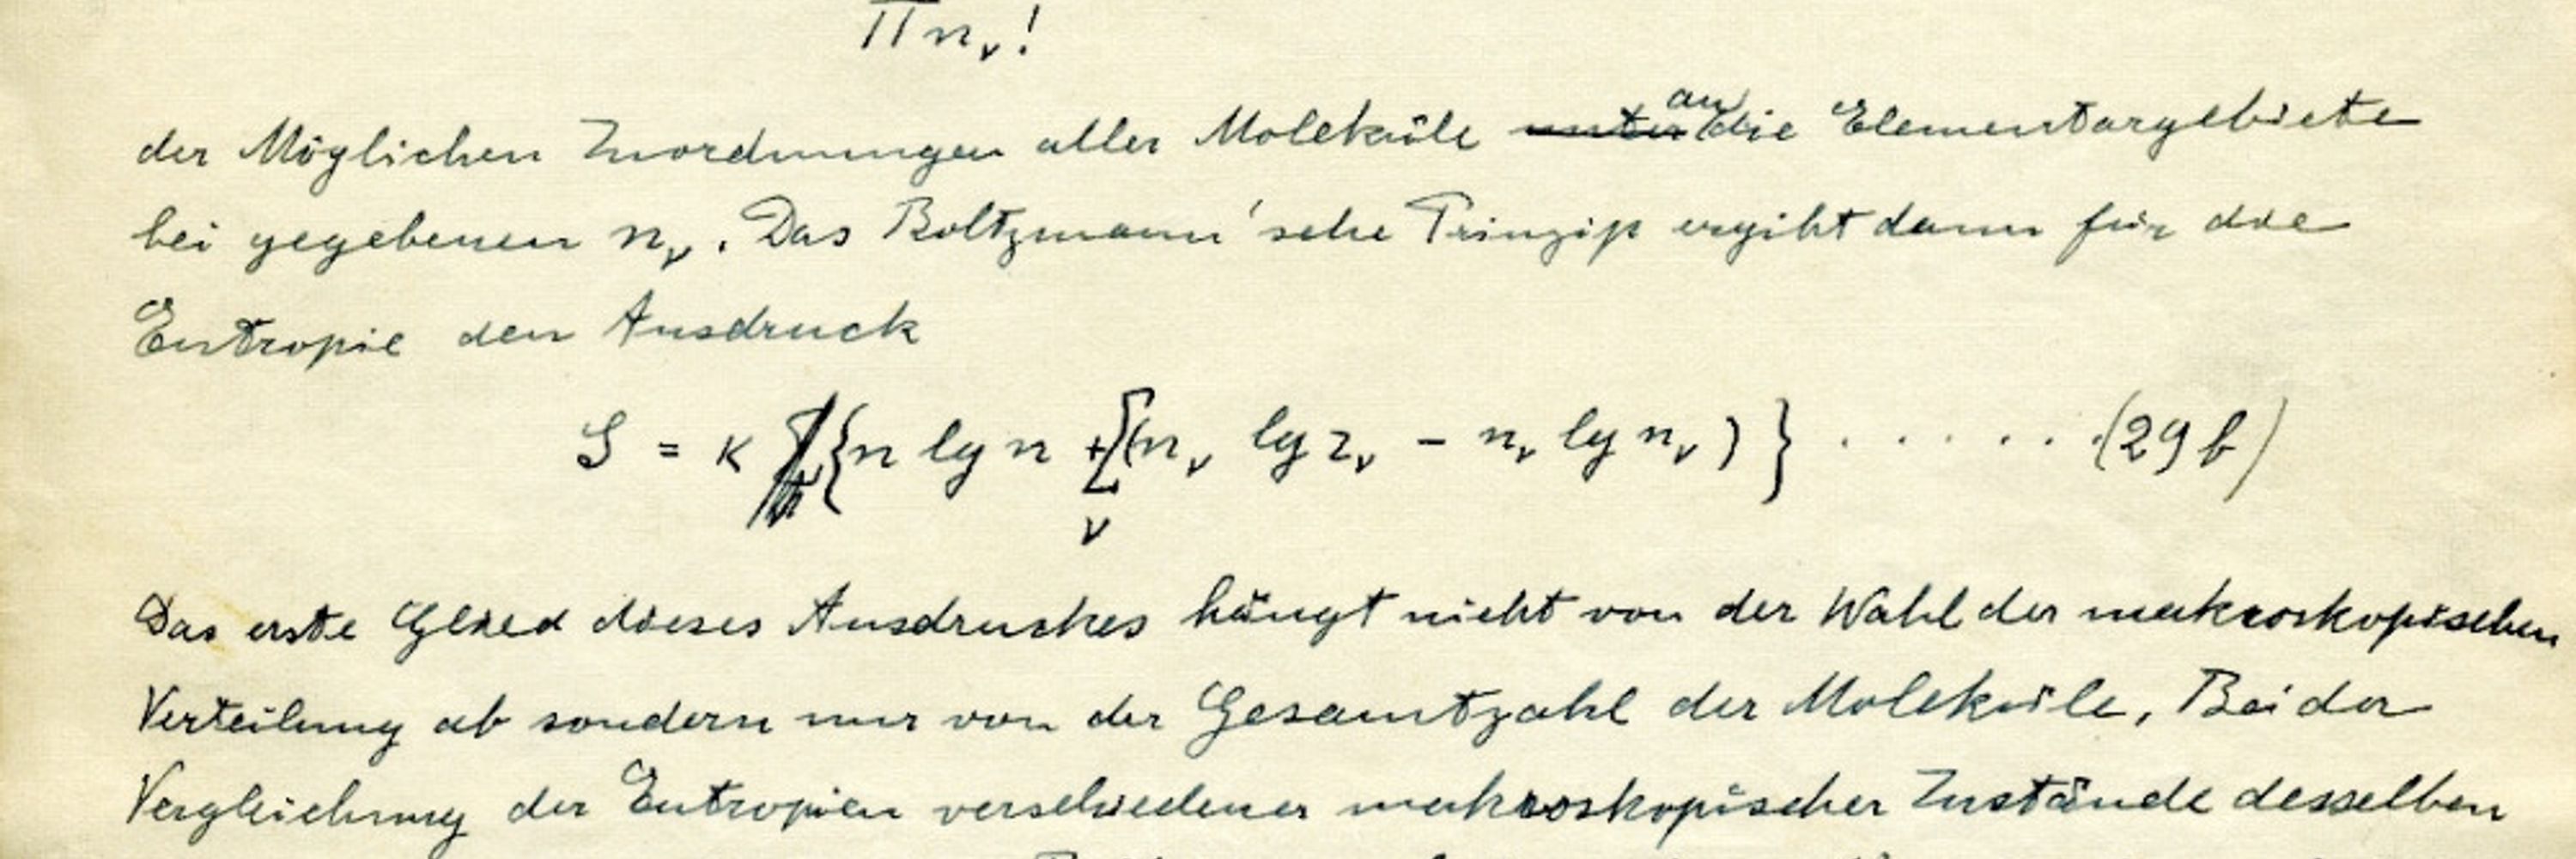 Π n_ν!
der Möglichen Zuordnungen aller Moleküle ~~unter~~ an die Elementargebiete
bei gegebenen n_ν. Das Boltzmann'sche Prinzip ergibt dann für die
Entropie den Ausdruck
S = κ {n lg n + Σ_ν (n_ν lg z_ν − n_ν lg n_ν)} . . . . . . (29 b)
Das erste Glied dieses Ausdruckes hängt nicht von der Wahl der makroskopischen
Verteilung ab sondern nur von der Gesamtzahl der Moleküle, Bei der
Vergleichung der Entropien verschiedener makroskopischer Zustände desselben